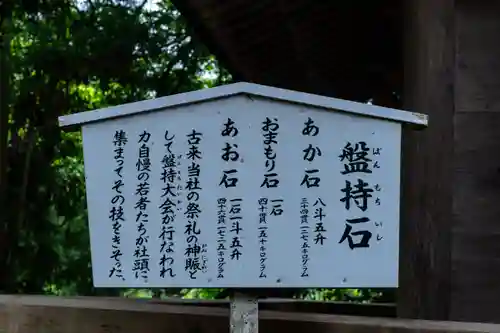 盤持石
ばんもちいし
あか石
八斗五升
三十四貫 一二七、五キログラム
おまもり石
一石
四十貫 一五十キログラム
あお石
一石一斗五升
四十六貫 一七二・五キログラム
古来当社の祭礼の神賑と
かみにぎわい
して盤持大会が行なわれ
ばんもちたいかい
力自慢の若者たちが社頭に
集まってその技をきそった。